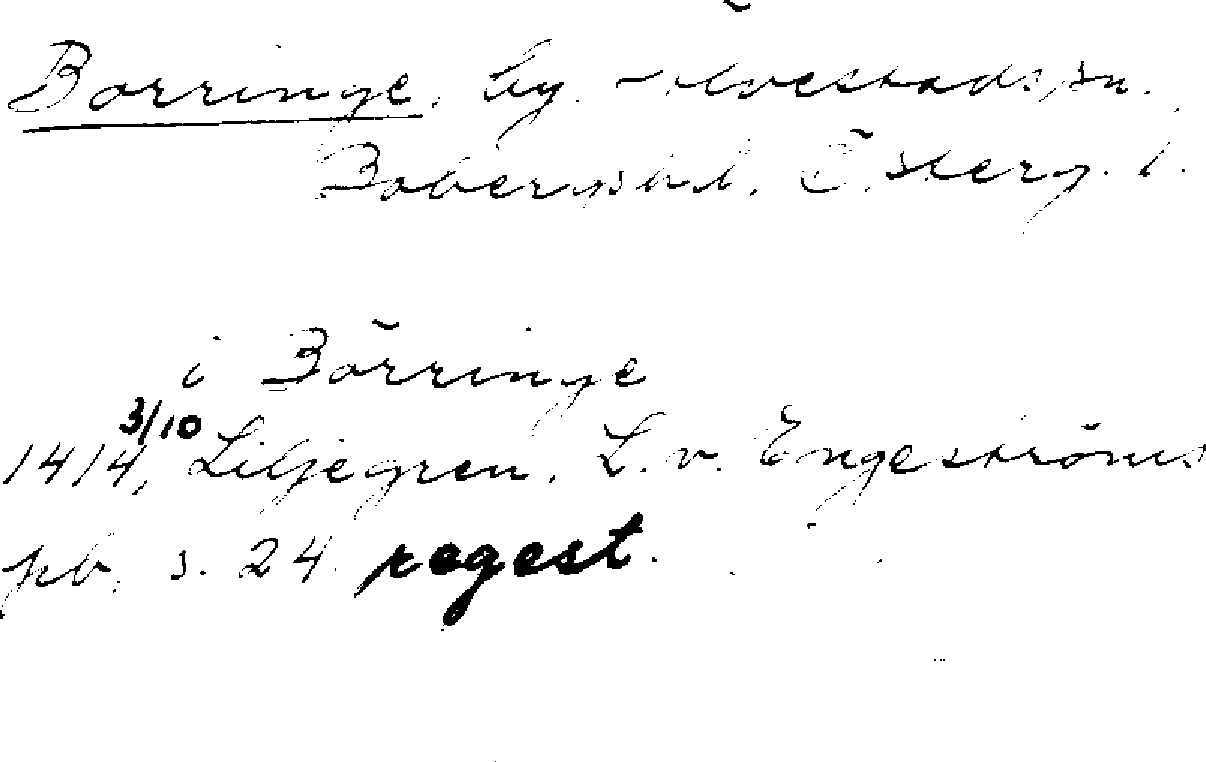 Borringe, by. Älvestads sn.
Bobergs hd. Österg. l.
i Börringe
1414 3/10, Liljegren, L. v. Engeströms
pb. s. 24 regest.